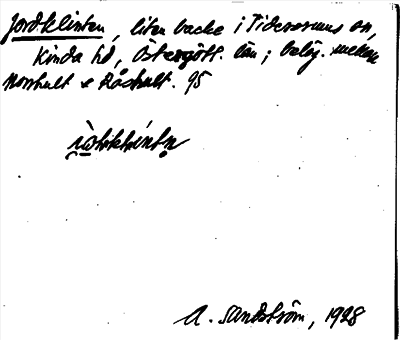 Jordklinten, liten backe i Tidersrums sn,
Kinda hd, Östergötl. län; beläg. mellan
Norrhult o Råshult. 95
A. Sandström, 1928